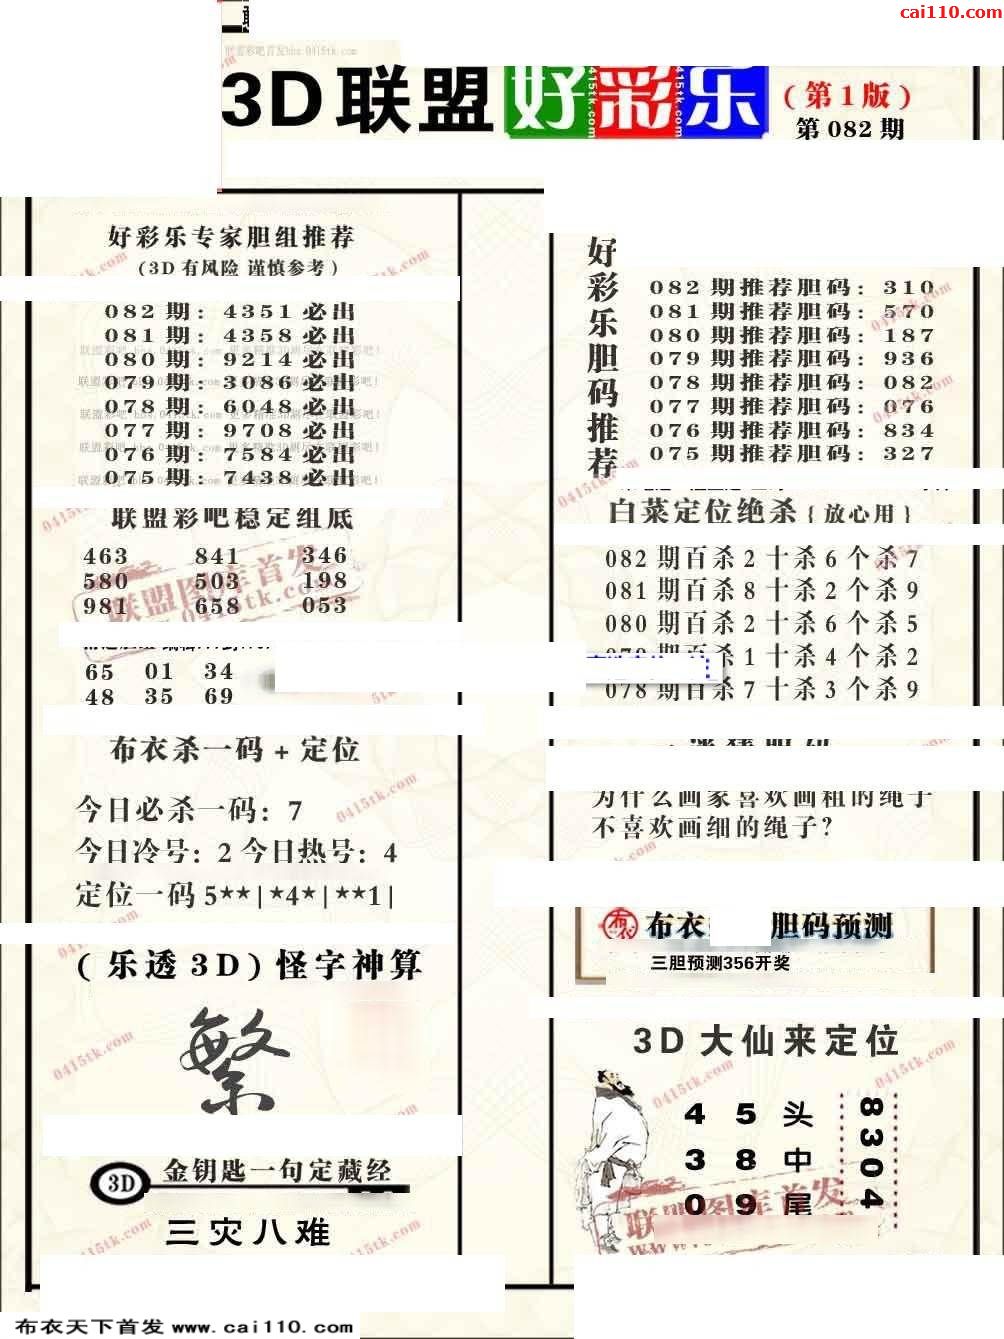 cai110.com
3D联盟好彩乐(第1版)
第082期
好彩乐专家胆组推荐
(3D有风险 谨慎参考)
082期: 4351必出
081期: 4358必出
080期: 9214必出
079期: 3086必出
078期: 6048必出
077期: 9708必出
076期: 7584必出
075期: 7438必出
联盟彩吧稳定组底
463 841 346
580 503 198
981 658 053
65 01 34
48 35 69
布衣杀一码+定位
今日必杀一码: 7
今日冷号: 2 今日热号: 4
定位一码5**|*4*|**1|
(乐透3D)怪字神算
繁
3D 金钥匙一句定藏经
三灾八难
好彩乐胆码推荐
082期推荐胆码: 310
081期推荐胆码: 570
080期推荐胆码: 187
079期推荐胆码: 936
078期推荐胆码: 082
077期推荐胆码: 076
076期推荐胆码: 834
075期推荐胆码: 327
白菜定位绝杀{放心用}
082期百杀2十杀6个杀7
081期百杀8十杀2个杀9
080期百杀2十杀6个杀5
杀1十杀4个杀2
078期百杀7十杀3个杀9
为什么画家喜欢画粗的绳子
不喜欢画细的绳子?
布衣 布衣 胆码预测
三胆预测356开奖
3D大仙来定位
4 5头
3 8中
0 9尾
8304
联盟图库首发
布衣天下首发 www.cai110.com